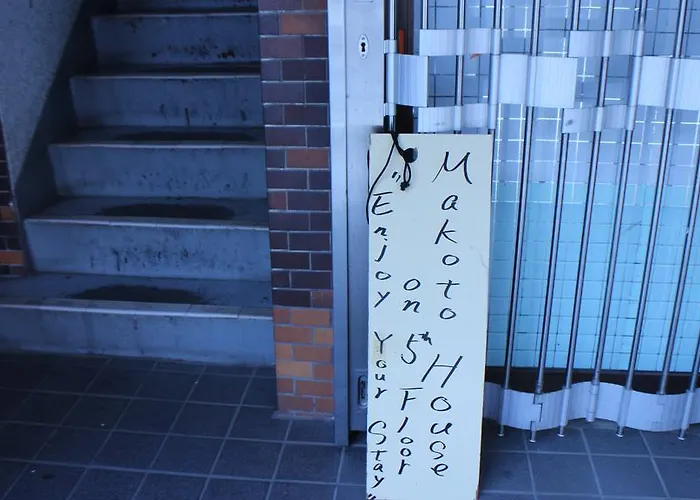 Makoto House
on 5th Floor
"Enjoy Your Stay"